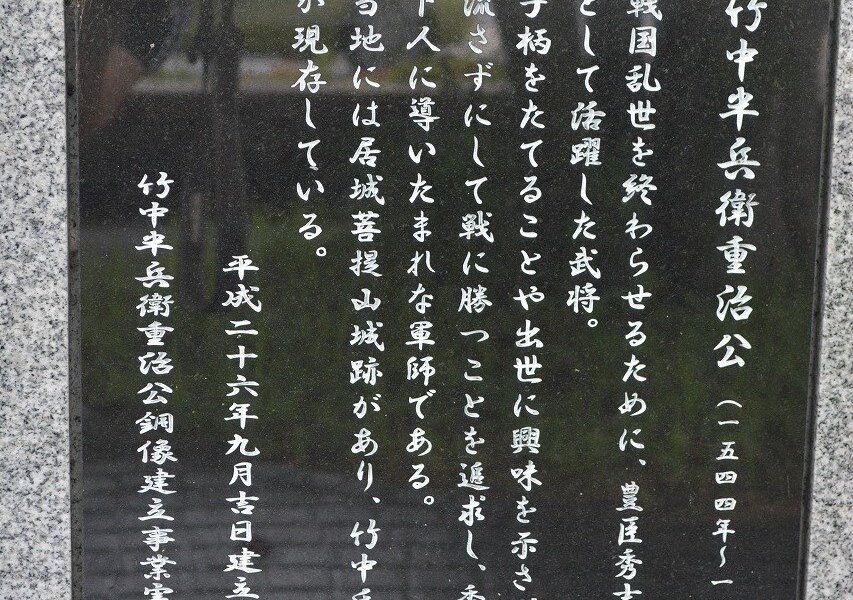 竹中半兵衛重治公(一五四四年~一
戦国乱世を終わらせるために、豊臣秀吉
として活躍した武将。
手柄をたてることや出世に興味を示さ
流さずにして戦に勝つことを追求し、秀
下人に導いたまれな軍師である。
当地には居城菩提山城跡があり、竹中氏
が現存している。
平成二十六年九月吉日建立
竹中半兵衛重治公銅像建立事業実